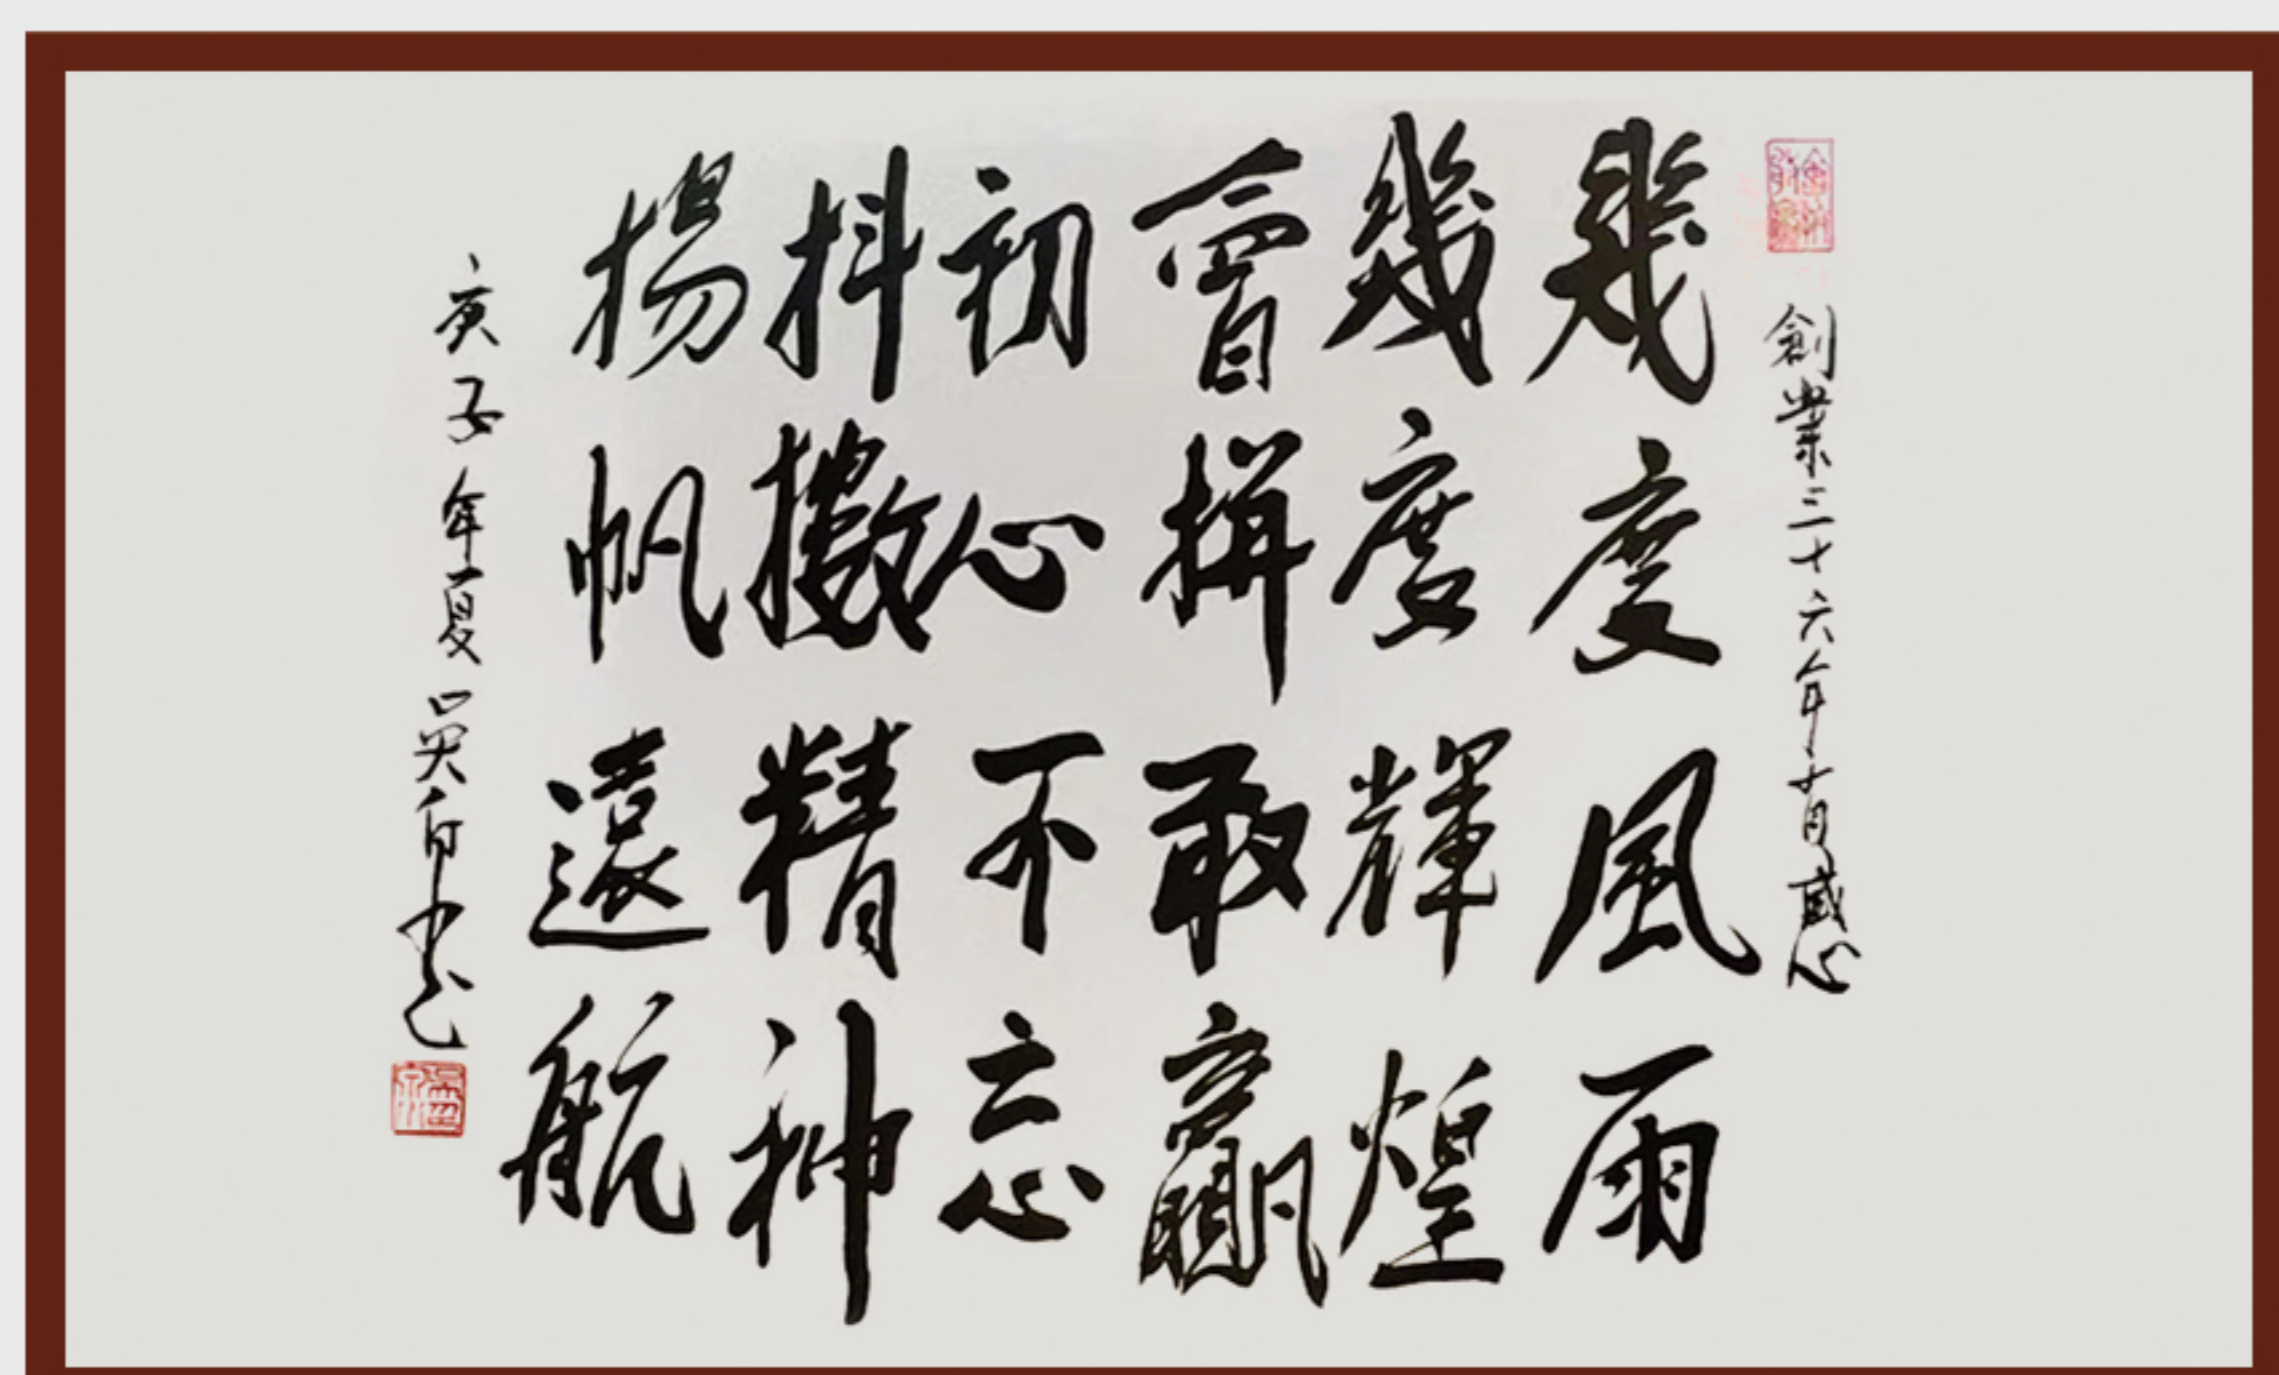 創業三十六年有感
幾度風雨
幾度輝煌
會拼敢贏
初心不忘
抖擻精神
揚帆遠航
庚子年夏吳